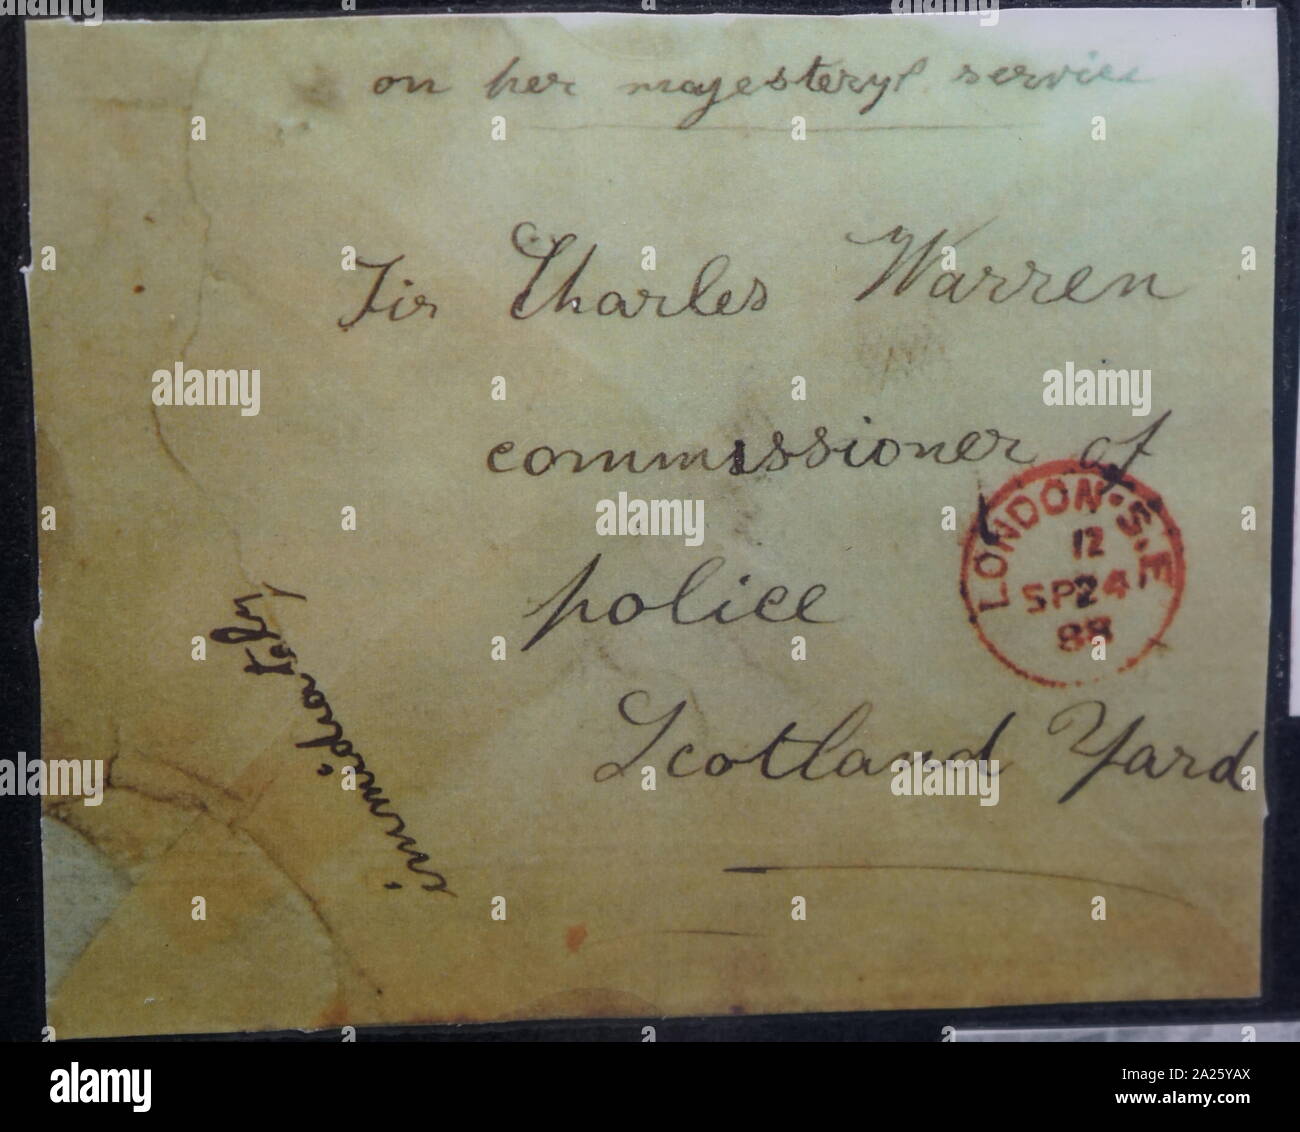 on her majesteryl service
Sir Charles Warren
commissioner of
police
Scotland Yard
immidiatly
LONDON·S.E
12
SP24
88
alamy
alamy
alamy
alamy
alamy
alamy
Image ID: 2A25YAX
www.alamy.com